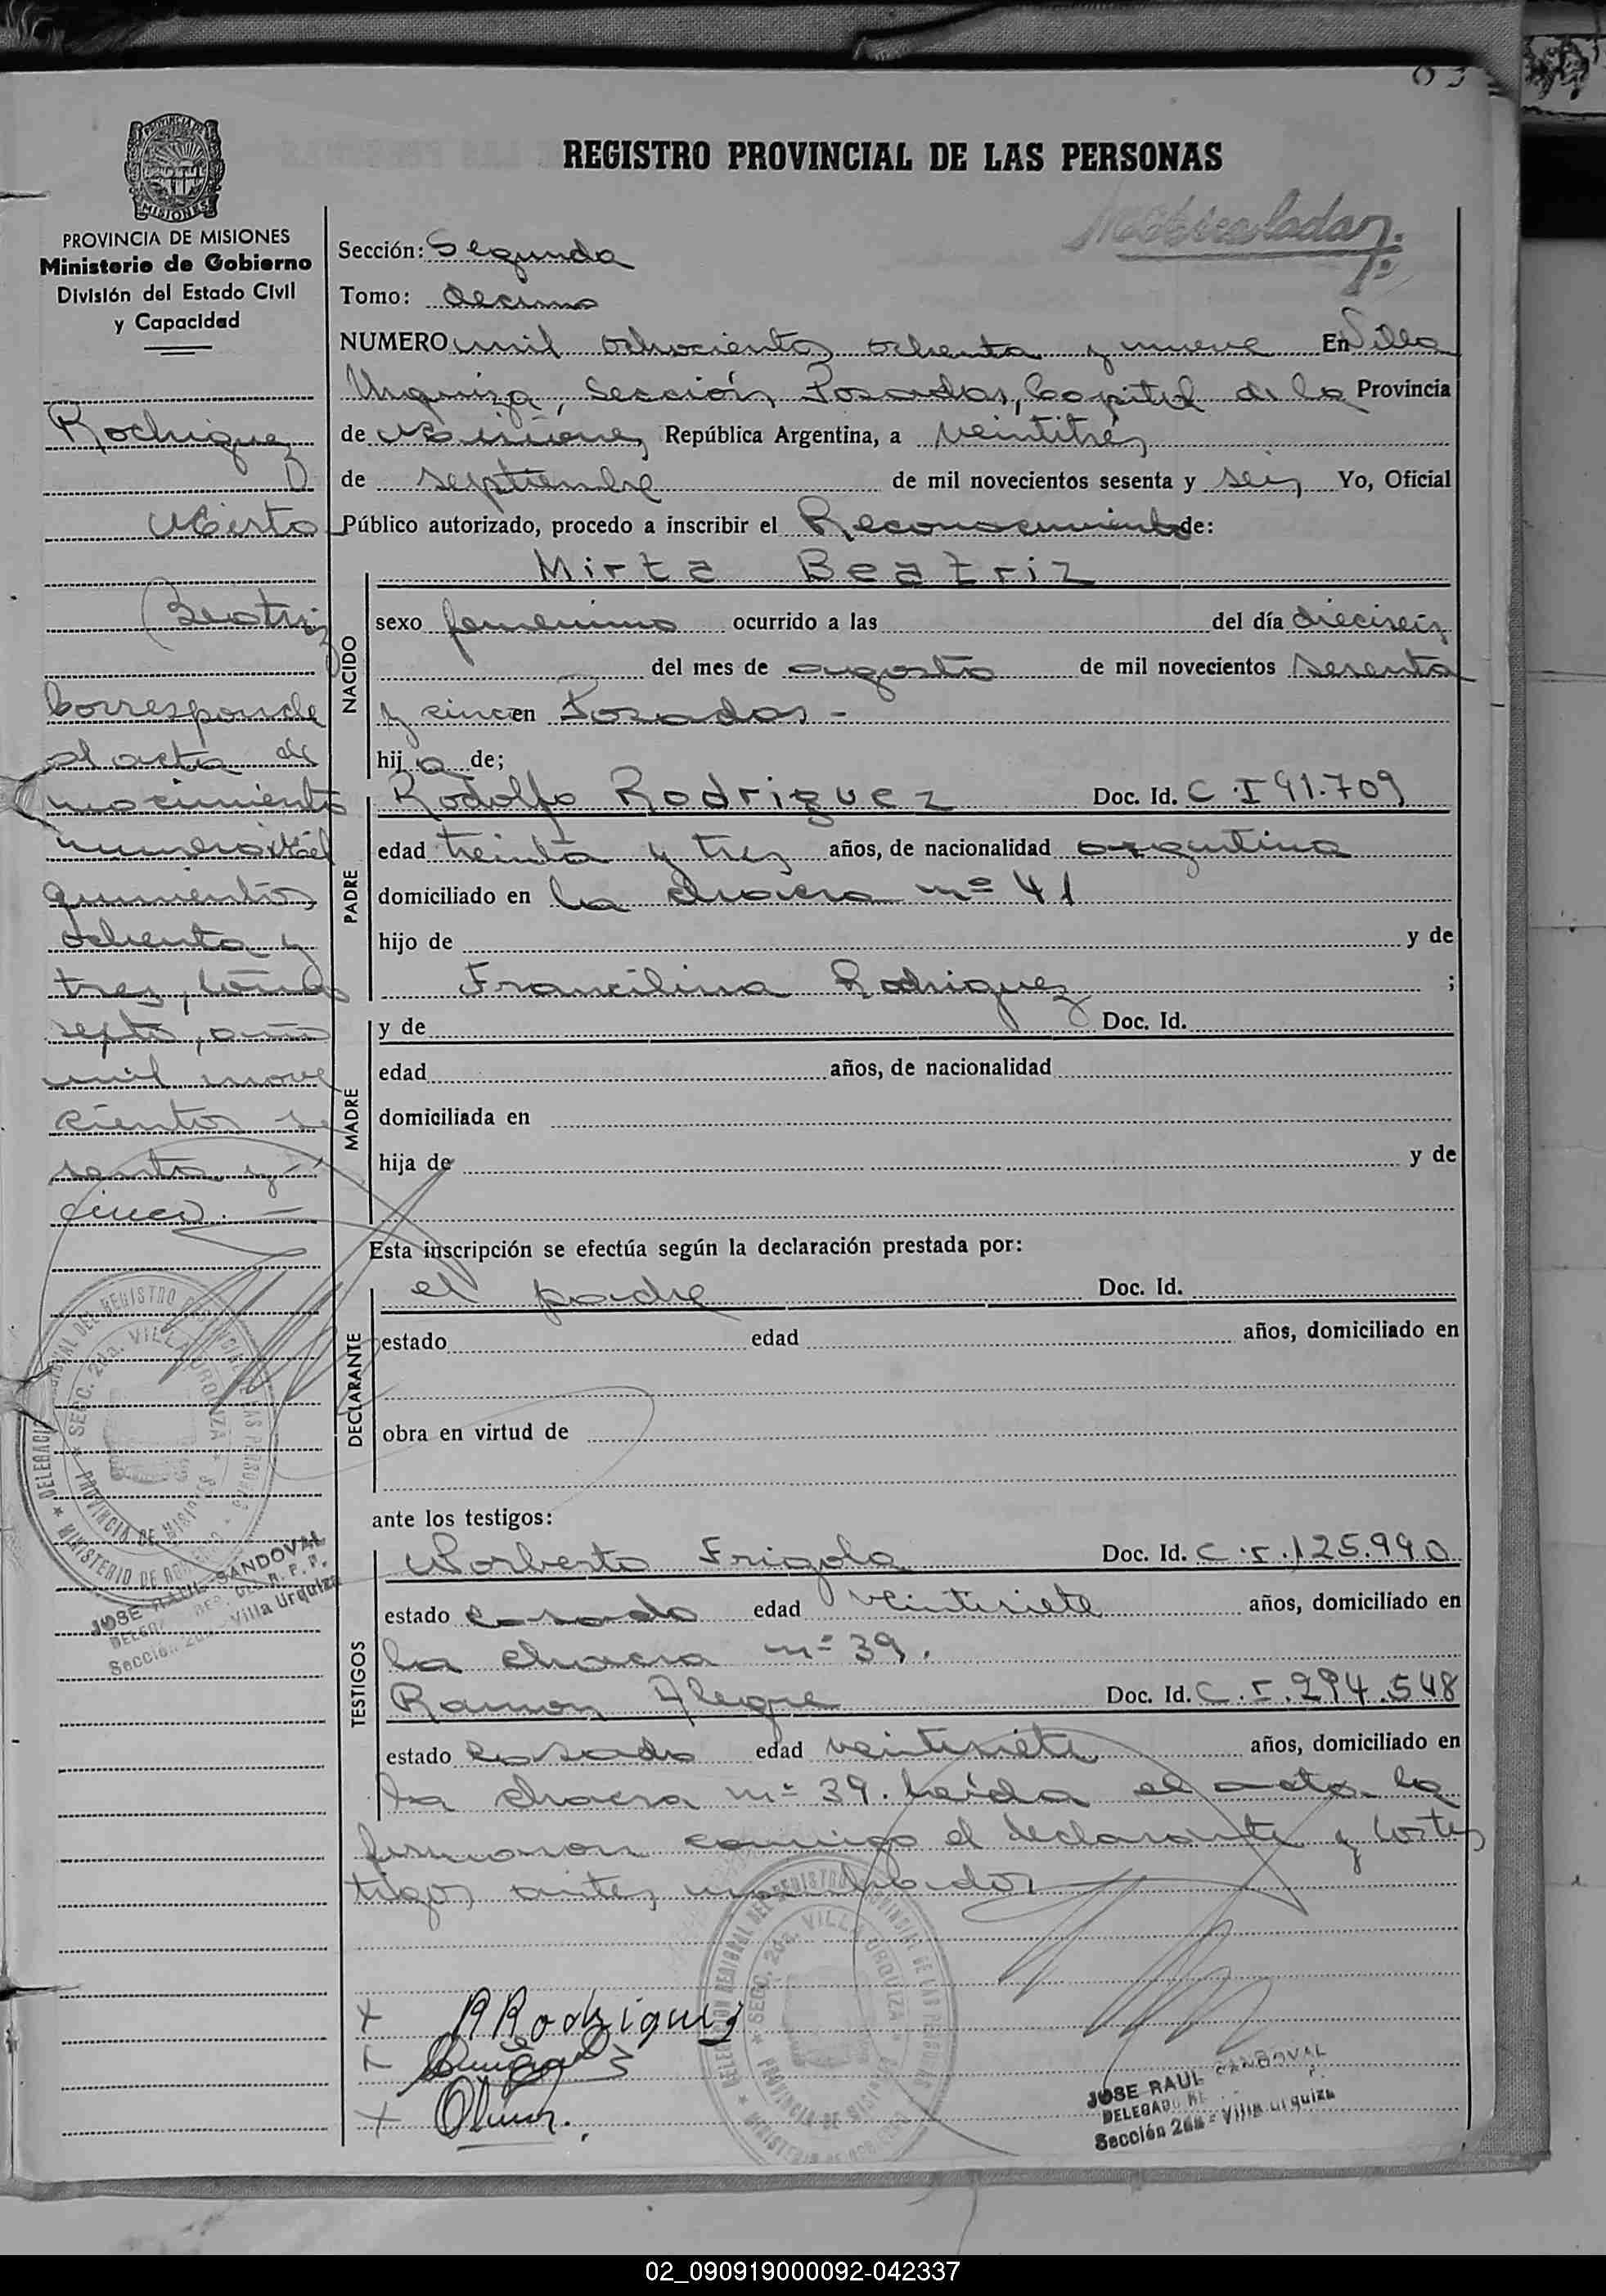 83
REGISTRO PROVINCIAL DE LAS PERSONAS
PROVINCIA DE MISIONES
Ministerio de Gobierno
División del Estado Civil
y Capacidad
Rodriguez
Mirta
Beatriz
Corresponde
al acta de
nacimiento
numero Mil
quinientos
ochenta y
tres, tomo
septo, año
mil nove
cientos se
senta y
cinco. —
DELEGACION REGIONAL DEL REGISTRO PROVINCIAL DE LAS PERSONAS
SEC. 2da. VILLA URQUIZA
PROVINCIA DE MISIONES
MINISTERIO DE GOBIERNO
JOSE RAUL SANDOVAL
Sección 2da - Villa Urquiza
Matriculada
Sección: Segunda
Tomo: decimo
NUMERO mil ochocientos ochenta y nueve En Villa
Urquiza, Sección Posadas, Capital de la Provincia
de Misiones República Argentina, a veintitrés
de septiembre de mil novecientos sesenta y seis Yo, Oficial
Público autorizado, procedo a inscribir el Reconocimiento de:
NACIDO
Mirta Beatriz
sexo femenino ocurrido a las del día dieciseis
del mes de agosto de mil novecientos sesenta
y cinco en Posadas -
hija de;
PADRE
Rodolfo Rodriguez Doc. Id. C.I 91.709
edad treinta y tres años, de nacionalidad argentina
domiciliado en la chacra nº 41
hijo de y de
Francilina Rodriguez ;
MADRE
y de Doc. Id.
edad años, de nacionalidad
domiciliada en
hija de y de
Esta inscripción se efectúa según la declaración prestada por:
DECLARANTE
el padre Doc. Id.
estado edad años, domiciliado en
obra en virtud de
ante los testigos:
TESTIGOS
Norberto Frigola Doc. Id. C.I.125.990
estado casado edad veintisiete años, domiciliado en
la chacra nº 39.
Ramon Alegre Doc. Id. C.I.294.548
estado casado edad veintisiete años, domiciliado en
la chacra nº 39. Leída el acta la
firmaron conmigo el declarante y los tes
tigos antes nombrados
R Rodriguez
DELEGACION REGIONAL DEL REGISTRO PROVINCIAL DE LAS PERSONAS
SEC. 2da. VILLA URQUIZA
PROVINCIA DE MISIONES
JOSE RAUL SANDOVAL
DELEGADO
Sección 2da - Villa Urquiza
02_090919000092-042337